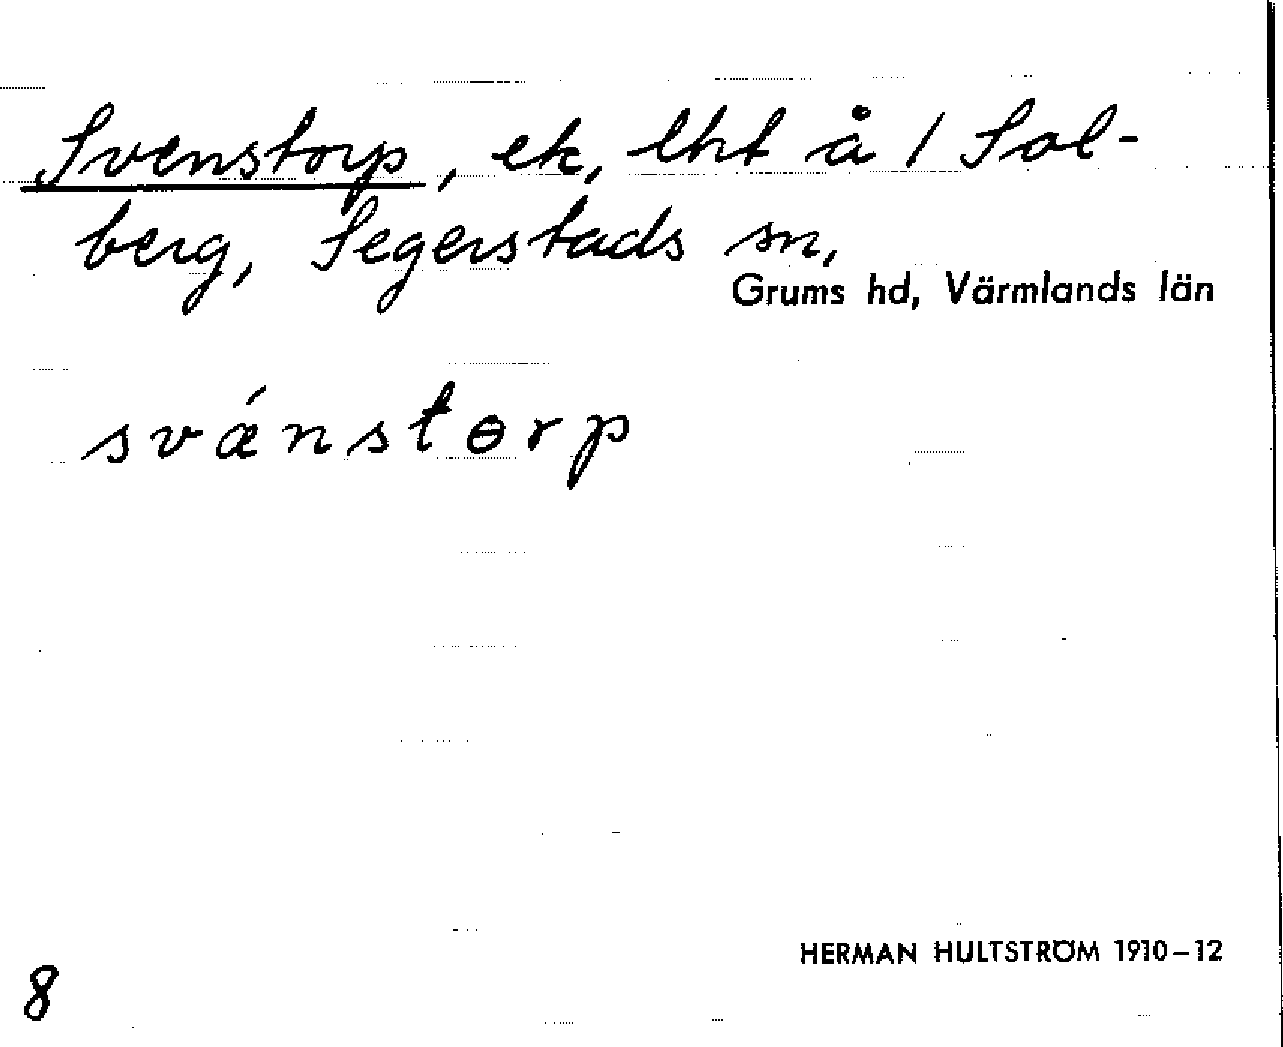 Svenstorp, ek, lht å / Sol-
berg, Segerstads sn,
Grums hd, Värmlands län
svǽnstɵrp
HERMAN HULTSTRÖM 1910–12
8